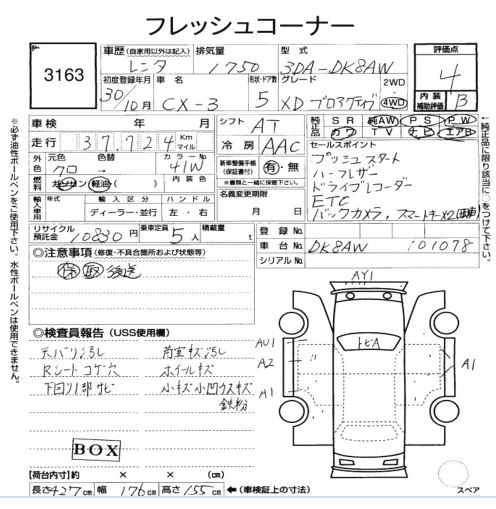 フレッシュコーナー
3163
車歴 (自家用以外は記入) レンタ
排気量 1750
型式 3DA-DK8AW
評価点 4
初度登録年月 30/10月
車名 CX-3
形状・ドア数 5
グレード XD プロアクティブ
2WD
4WD
内装補助評価 B
車検 年 月
シフト AT
純正品 SR AW PS PW
カワ TV ナビ エアB
走行 37,724 Km マイル
冷房 AAC
外色 元色 クロ 色替 カラーNo 41W
燃料 ガソリン 軽油 内装色
新車整備手帳(保証書付) 有・無
※書類と一緒に提出
セールスポイント
プッシュスタート
ハーフレザー
ドライブレコーダー
ETC
バックカメラ, スマートキー×2
輸入車用 年式 輸入区分 ハンドル
ディーラー・並行 左・右
名義変更期限
月 日
リサイクル預託金 10830円
乗車定員 5人
積載量 t
登録No.
車台No. DK8AW 101078
シリアルNo.
◎注意事項 (修復・不具合箇所および状態等)
保 取 後送
◎検査員報告 (USS使用欄)
天バリ汚し
Rシートコゲ穴
下回り1部サビ
荷室キズ汚し
ホイールキズ
小キズ小凹ウスキズ
鉄粉
AY1
トビA
AU1
A2
A1
A1
A1
BOX
【荷台内寸】 約 × × (cm)
長さ427cm 幅176cm 高さ155cm ←(車検証上の寸法)
スペア
※必ず油性ボールペンをご使用下さい。水性ボールペンは使用できません。
※純正品に限り該当に○をつけて下さい。